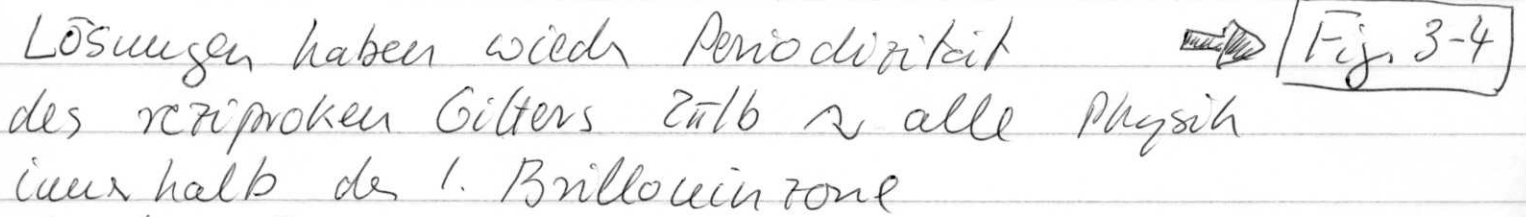 Lösungen haben wieder Periodizität ⇒ Fig. 3-4
des reziproken Gitters 2π/b ↷ alle Physik
innerhalb der 1. Brillouinzone